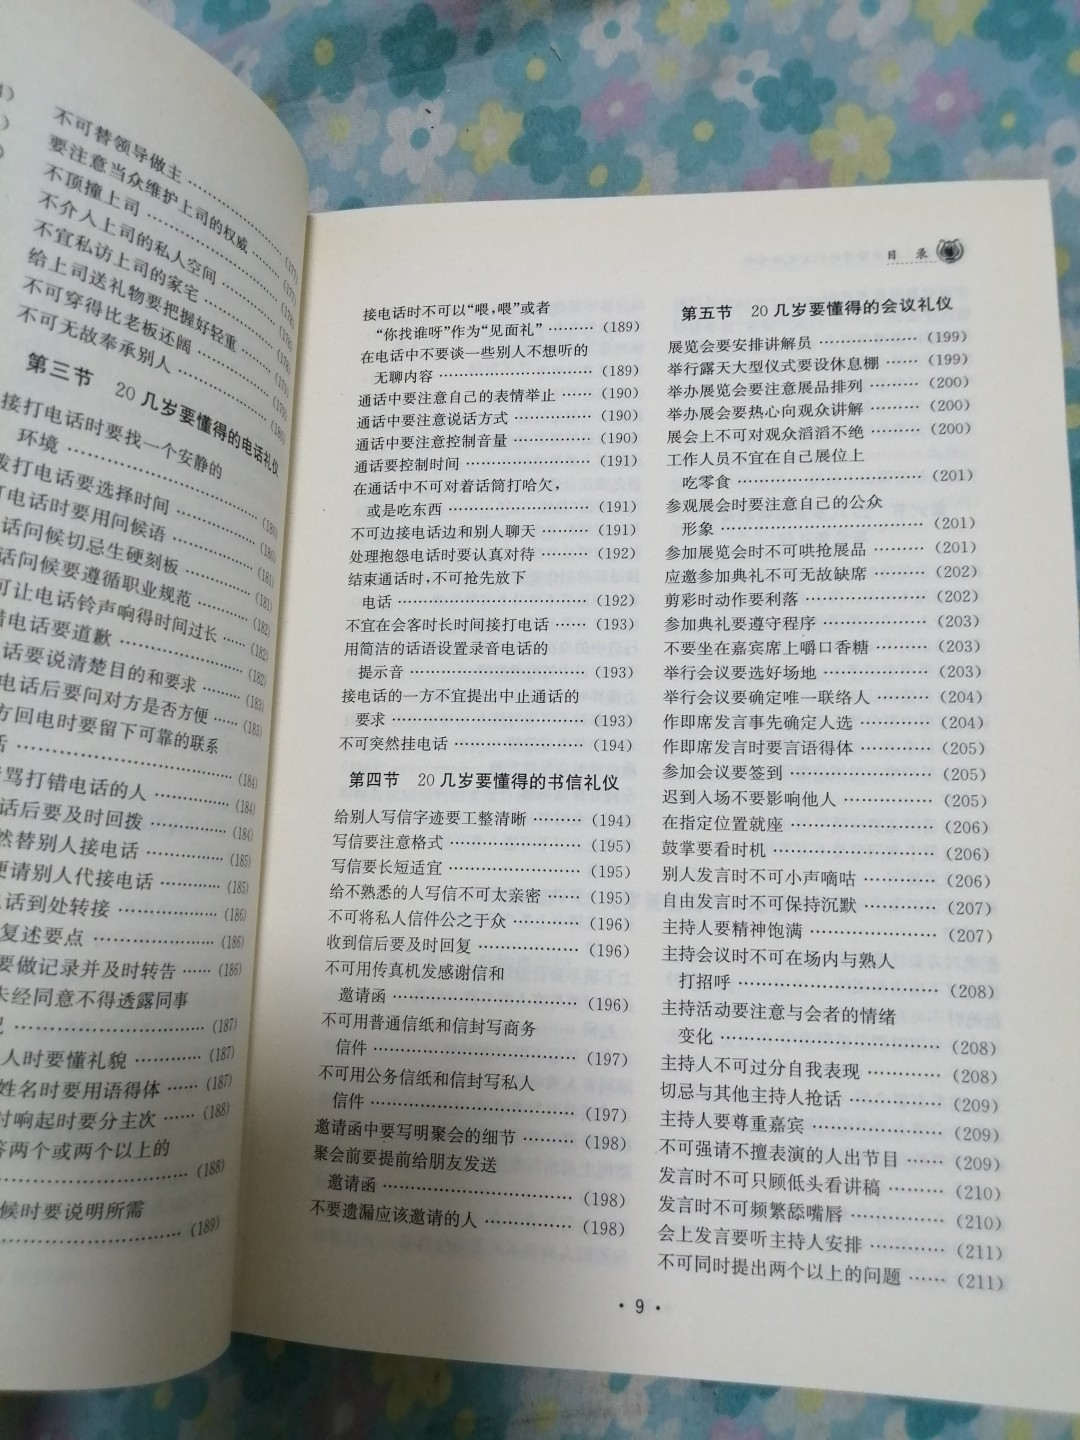 不可替领导做主
要注意当众维护上司的权威 (177)
不顶撞上司
不介入上司的私人空间
不宜私访上司的家宅
给上司送礼物要把握好轻重
不可穿得比老板还阔
不可无故奉承别人
第三节 20几岁要懂得的电话礼仪
接打电话时要找一个安静的
环境 (180)
拨打电话要选择时间 (180)
打电话时要用问候语 (181)
话问候切忌生硬刻板 (181)
话问候要遵循职业规范 (182)
可让电话铃声响得时间过长 (182)
错电话要道歉 (182)
话要说清楚目的和要求 (183)
电话后要问对方是否方便 …… (183)
方回电时要留下可靠的联系
(184)
骂打错电话的人 (184)
话后要及时回拨 (184)
然替别人接电话 (185)
便请别人代接电话 (185)
话到处转接 (186)
复述要点 (186)
要做记录并及时转告 …… (186)
未经同意不得透露同事
(187)
人时要懂礼貌 (187)
姓名时要用语得体 …… (187)
时响起时要分主次 (188)
答两个或两个以上的
(188)
候时要说明所需
(189)
目 录
接电话时不可以“喂,喂”或者
“你找谁呀”作为“见面礼” ……… (189)
在电话中不要谈一些别人不想听的
无聊内容 …………………… (189)
通话中要注意自己的表情举止 …… (190)
通话中要注意说话方式 ………… (190)
通话中要注意控制音量 ………… (190)
通话要控制时间 ……………… (191)
在通话中不可对着话筒打哈欠,
或是吃东西 ………………… (191)
不可边接电话边和别人聊天 ……… (191)
处理抱怨电话时要认真对待 ……… (192)
结束通话时,不可抢先放下
电话 ………………………… (192)
不宜在会客时长时间接打电话 …… (193)
用简洁的话语设置录音电话的
提示音 ……………………… (193)
接电话的一方不宜提出中止通话的
要求 ………………………… (193)
不可突然挂电话 ……………… (194)
第四节 20几岁要懂得的书信礼仪
给别人写信字迹要工整清晰 ……… (194)
写信要注意格式 ……………… (195)
写信要长短适宜 ……………… (195)
给不熟悉的人写信不可太亲密 …… (195)
不可将私人信件公之于众 ……… (196)
收到信后要及时回复 …………… (196)
不可用传真机发感谢信和
邀请函 ……………………… (196)
不可用普通信纸和信封写商务
信件 ………………………… (197)
不可用公务信纸和信封写私人
信件 ………………………… (197)
邀请函中要写明聚会的细节 ……… (198)
聚会前要提前给朋友发送
邀请函 ……………………… (198)
不要遗漏应该邀请的人 ………… (198)
第五节 20几岁要懂得的会议礼仪
展览会要安排讲解员 …………… (199)
举行露天大型仪式要设休息棚 …… (199)
举办展览会要注意展品排列 ……… (200)
举办展会要热心向观众讲解 ……… (200)
展会上不可对观众滔滔不绝 ……… (200)
工作人员不宜在自己展位上
吃零食 ……………………… (201)
参观展会时要注意自己的公众
形象 ………………………… (201)
参加展览会时不可哄抢展品 ……… (201)
应邀参加典礼不可无故缺席 ……… (202)
剪彩时动作要利落 …………… (202)
参加典礼要遵守程序 …………… (203)
不要坐在嘉宾席上嚼口香糖 ……… (203)
举行会议要选好场地 …………… (203)
举行会议要确定唯一联络人 ……… (204)
作即席发言事先确定人选 ……… (204)
作即席发言时要言语得体 ……… (205)
参加会议要签到 ……………… (205)
迟到入场不要影响他人 ………… (205)
在指定位置就座 ……………… (206)
鼓掌要看时机 ………………… (206)
别人发言时不可小声嘀咕 ……… (206)
自由发言时不可保持沉默 ……… (207)
主持人要精神饱满 …………… (207)
主持会议时不可在场内与熟人
打招呼 ……………………… (208)
主持活动要注意与会者的情绪
变化 ………………………… (208)
主持人不可过分自我表现 ……… (208)
切忌与其他主持人抢话 ………… (209)
主持人要尊重嘉宾 …………… (209)
不可强请不擅表演的人出节目 …… (209)
发言时不可只顾低头看讲稿 ……… (210)
发言时不可频繁舔嘴唇 ………… (210)
会上发言要听主持人安排 ……… (211)
不可同时提出两个以上的问题 …… (211)
· 9 ·